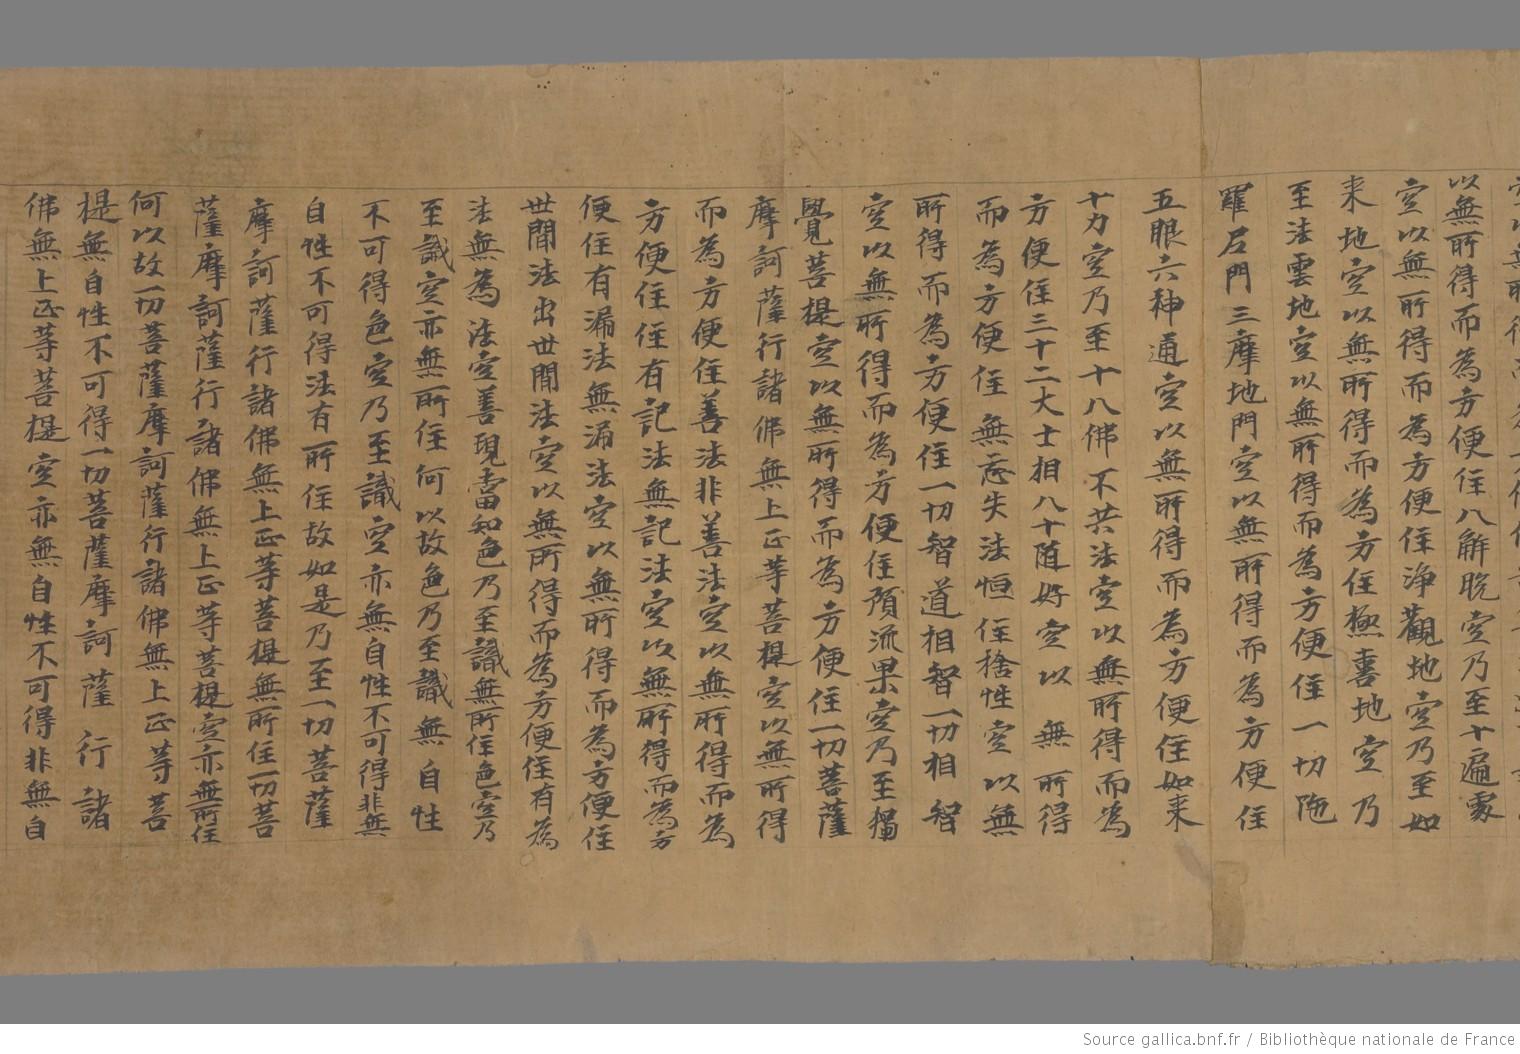 以無所得而為方便住八解脫空乃至十遍處
空以無所得而為方便住淨觀地空乃至如
来地空以無所得而為方住極喜地空乃
至法雲地空以無所得而為方便住一切陁
羅尼門三摩地門空以無所得而為方便住
五眼六神通空以無所得而為方便住如来
十力空乃至十八佛不共法空以無所得而為
方便住三十二大士相八十随好空以無所得
而為方便住無忘失法恒住捨性空以無
所得而為方便住一切智道相智一切相智
空以無所得而為方便住預流果空乃至獨
覺菩提空以無所得而為方便住一切菩薩
摩訶薩行諸佛無上正等菩提空以無所得
而為方便住善法非善法空以無所得而為
方便住住有記法無記法空以無所得而為方
便住有漏法無漏法空以無所得而為方便住
世間法出世間法空以無所得而為方便住有為
法無為法空善現當知色乃至識無所住色空乃
至識空亦無所住何以故色乃至識無自性
不可得色空乃至識空亦無自性不可得非無
自性不可得法有所住故如是乃至一切菩薩
摩訶薩行諸佛無上正等菩提無所住一切菩
薩摩訶薩行諸佛無上正等菩提空亦無所住
何以故一切菩薩摩訶薩行諸佛無上正等菩
提無自性不可得一切菩薩摩訶薩行諸
佛無上正等菩提空亦無自性不可得非無自
Source gallica.bnf.fr / Bibliothèque nationale de France